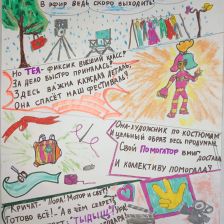 В ЭФИР ВЕДЬ СКОРО ВЫХОДИТЬ!
НО ТЕЯ-ФИКСИК ВЫСШИЙ КЛАСС!
ЗА ДЕЛО БЫСТРО ПРИНЯЛАСЬ!
ЗДЕСЬ ВАЖНА КАЖДАЯ ДЕТАЛЬ,
ОНА СПАСЁТ НАШ ФЕСТИВАЛЬ!
ОНА-ХУДОЖНИК ПО КОСТЮМАМ
И ЦЕЛЬНЫЙ ОБРАЗ ВЕСЬ ПРОДУМАЛА.
СВОЙ ПОМОГАТОР ВМИГ
ДОСТАЛА
И КОЛЛЕКТИВУ ПОМОГАЛА.
КРИЧАТ-"ПОРА! МОТОР И СВЕТ!"
ГОТОВО ВСЁ!.. "А В ЧЁМ СЕКРЕТ?"
"ТЫДЫЩ!"